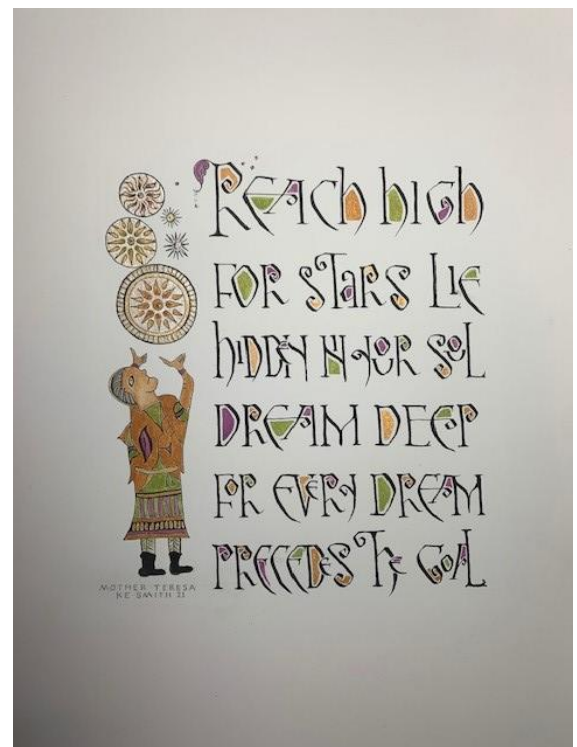 Reach high
for stars lie
hidden in your soul
Dream deep
for every dream
precedes the goal
MOTHER TERESA
KE SMITH 21